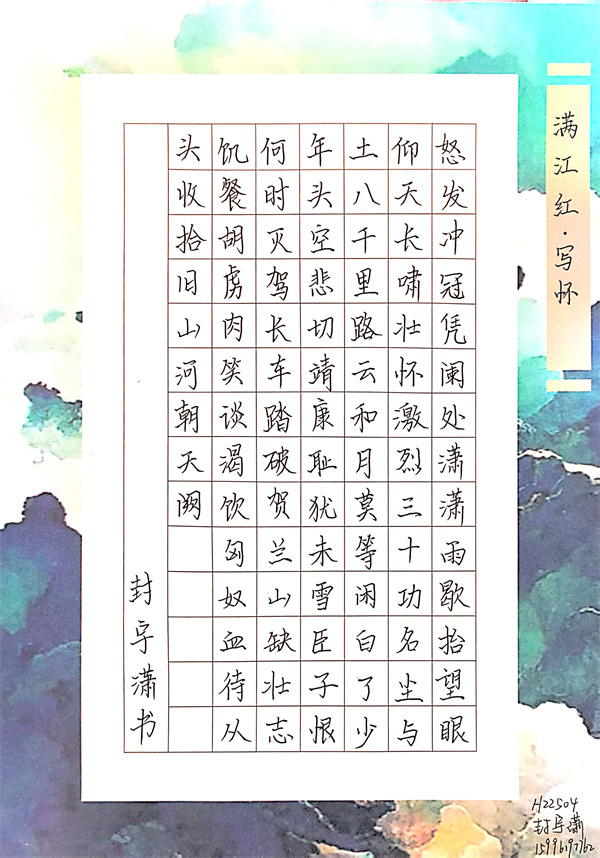 满江红·写怀
怒发冲冠凭阑处潇潇雨歇抬望眼
仰天长啸壮怀激烈三十功名尘与
土八千里路云和月莫等闲白了少
年头空悲切靖康耻犹未雪臣子恨
何时灭驾长车踏破贺兰山缺壮志
饥餐胡虏肉笑谈渴饮匈奴血待从
头收拾旧山河朝天阙
封宇潇书
H22504
封宇潇